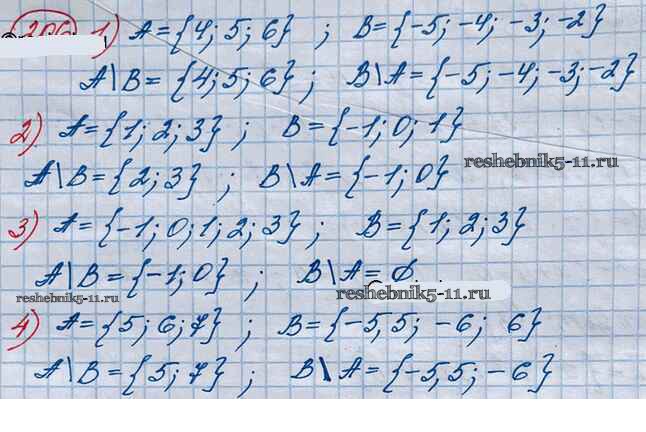 206 1) A={4; 5; 6} ; B={-5; -4; -3; -2}
A\B= {4; 5; 6} ; B\A={-5; -4; -3; -2}
2) A={1; 2; 3} ; B={-1; 0; 1}
A\B={2; 3} ; B\A={-1; 0}
reshebnik5-11.ru
3) A={-1; 0; 1; 2; 3} ; B={1; 2; 3}
A\B={-1; 0} ; B\A=∅.
reshebnik5-11.ru
reshebnik5-11.ru
4) A={5; 6; 7} ; B={-5,5; -6; 6}
A\B={5; 7} ; B\A={-5,5; -6}